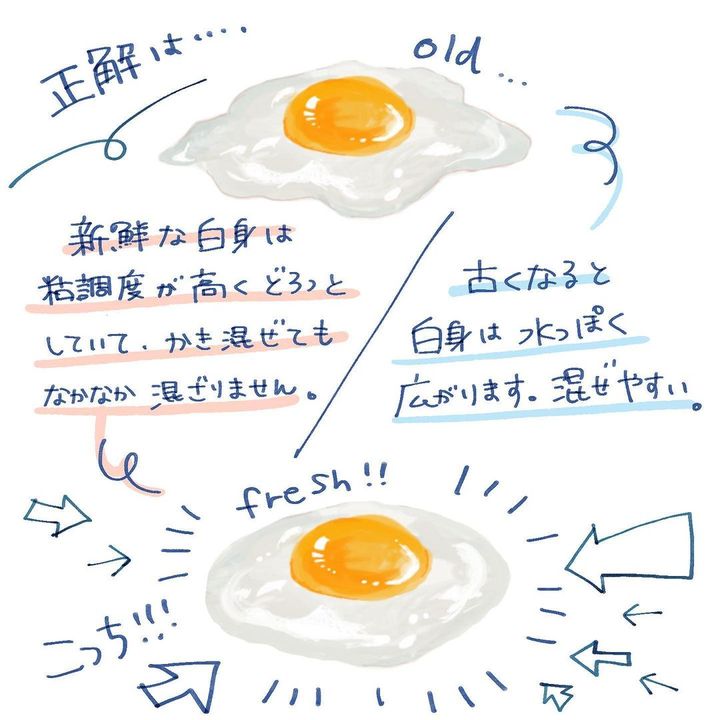 正解は‥‥
old...
新鮮な白身は
粘調度が高くどろっと
していて、かき混ぜても
なかなか混ざりません。
古くなると
白身は水っぽく
広がります。混ぜやすい。
fresh!!
こっち!!!